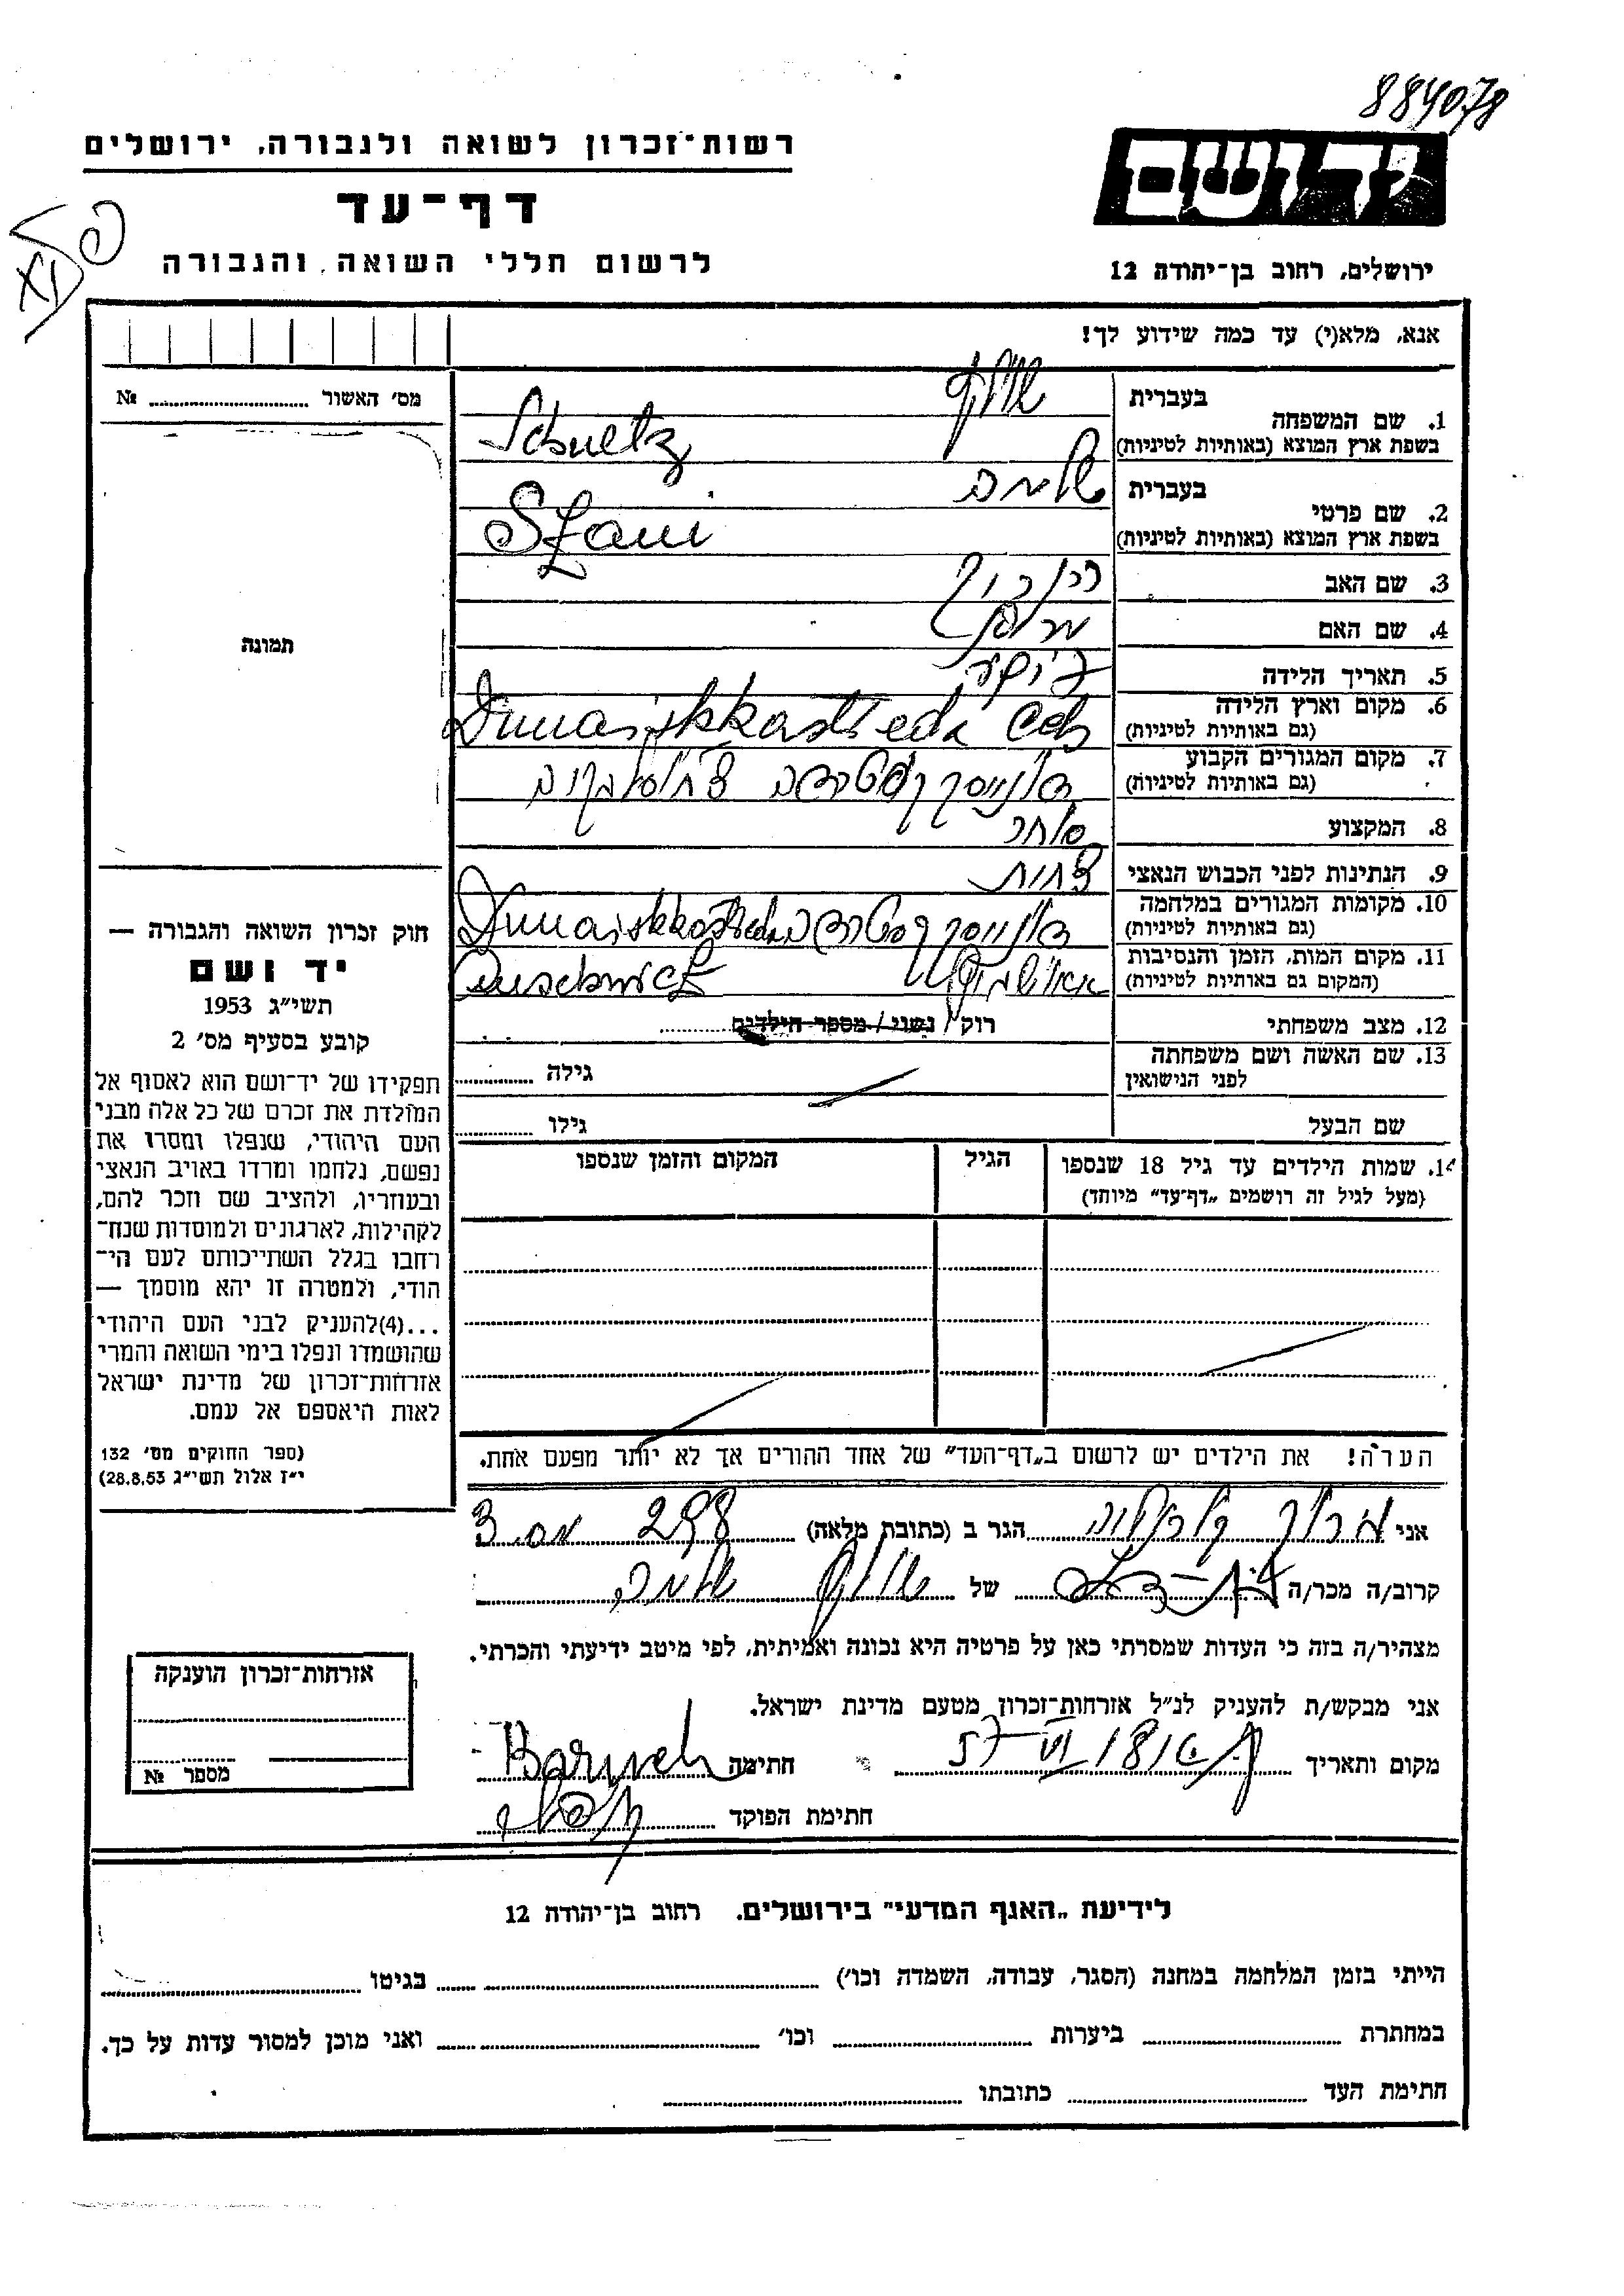 884078
רשות־זכרון לשואה ולגבורה, ירושלים
דף־עד
לרשום חללי השואה והגבורה
יד ושם
ירושלים, רחוב בן־יהודה 12
אנא, מלא(י) עד כמה שידוע לך!
מס׳ האשור № 
תמונה
1. שם המשפחה בעברית שולץ
בשפת ארץ המוצא (באותיות לטיניות) Schueltz
2. שם פרטי בעברית שלמה
בשפת ארץ המוצא (באותיות לטיניות) Szani
3. שם האב
4. שם האם
5. תאריך הלידה
6. מקום וארץ הלידה Dunaiskkastreda Csh
(גם באותיות לטיניות)
7. מקום המגורים הקבוע דונייסקקסטרדה
(גם באותיות לטיניות)
8. המקצוע סוחר
9. הנתינות לפני הכבוש הנאצי צ'כית
10. מקומות המגורים במלחמה דונייסקקסטרדה Dunaiskkastreda
(גם באותיות לטיניות)
11. מקום המות, הזמן והנסיבות אאושוויץ Auschwicz
(המקום גם באותיות לטיניות)
12. מצב משפחתי רוק / נשוי / מספר הילדים
13. שם האשה ושם משפחתה גילה
לפני הנישואין
שם הבעל גילו
14. שמות הילדים עד גיל 18 שנספו הגיל המקום והזמן שנספו
(מעל לגיל זה רושמים „דף־עד״ מיוחד)
הערה! את הילדים יש לרשום ב„דף־העד״ של אחד ההורים אך לא יותר מפעם אחת.
חוק זכרון השואה והגבורה —
יד ושם
תשי״ג 1953
קובע בסעיף מס׳ 2
תפקידו של יד־ושם הוא לאסוף אל
המולדת את זכרם של כל אלה מבני
העם היהודי, שנפלו ומסרו את
נפשם, נלחמו ומרדו באויב הנאצי
ובעוזריו, ולהציב שם וזכר להם,
לקהילות, לארגונים ולמוסדות שנח־
רחבו בגלל השתייכותם לעם הי־
הודי, ולמטרה זו יהא מוסמך —
...(4)להעניק לבני העם היהודי
שהושמדו ונפלו בימי השואה והמרי
אזרחות־זכרון של מדינת ישראל
לאות היאספם אל עמם.
(ספר החוקים מס׳ 132
י״ז אלול תשי״ג 28.8.53)
אני ברוך הגר ב (כתובת מלאה) 298 מס. 3
קרוב/ה מכר/ה של שולץ שלמה
מצהיר/ה בזה כי העדות שמסרתי כאן על פרטיה היא נכונה ואמיתית, לפי מיטב ידיעתי והכרתי.
אני מבקש/ת להעניק לנ״ל אזרחות־זכרון מטעם מדינת ישראל.
מקום ותאריך חתימה Baruch
חתימת הפוקד
אזרחות־זכרון הוענקה
מספר №
לידיעת „האגף המדעי״ בירושלים, רחוב בן־יהודה 12
הייתי בזמן המלחמה במחנה (הסגר, עבודה, השמדה וכו׳) בגיטו
במחתרת ביערות וכו׳ ואני מוכן למסור עדות על כך.
חתימת העד כתובתו